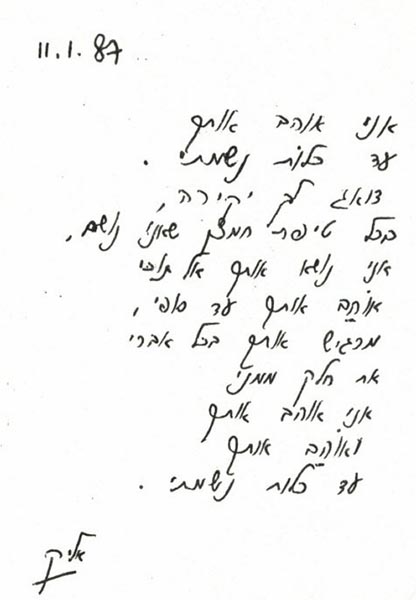 11.1.87
אני אוהב אותך
עד כלות נשמתי.
דואג לך יקירה,
בכל טיפת חמצן שאני נושם,
אני נושא אותך אל תוכי
אוהב אותך עד סופי,
מרגיש אותך בכל אברי
את חלק ממני
אני אוהב אותך
ואוהב אותך
עד כלות נשמתי.
אליק